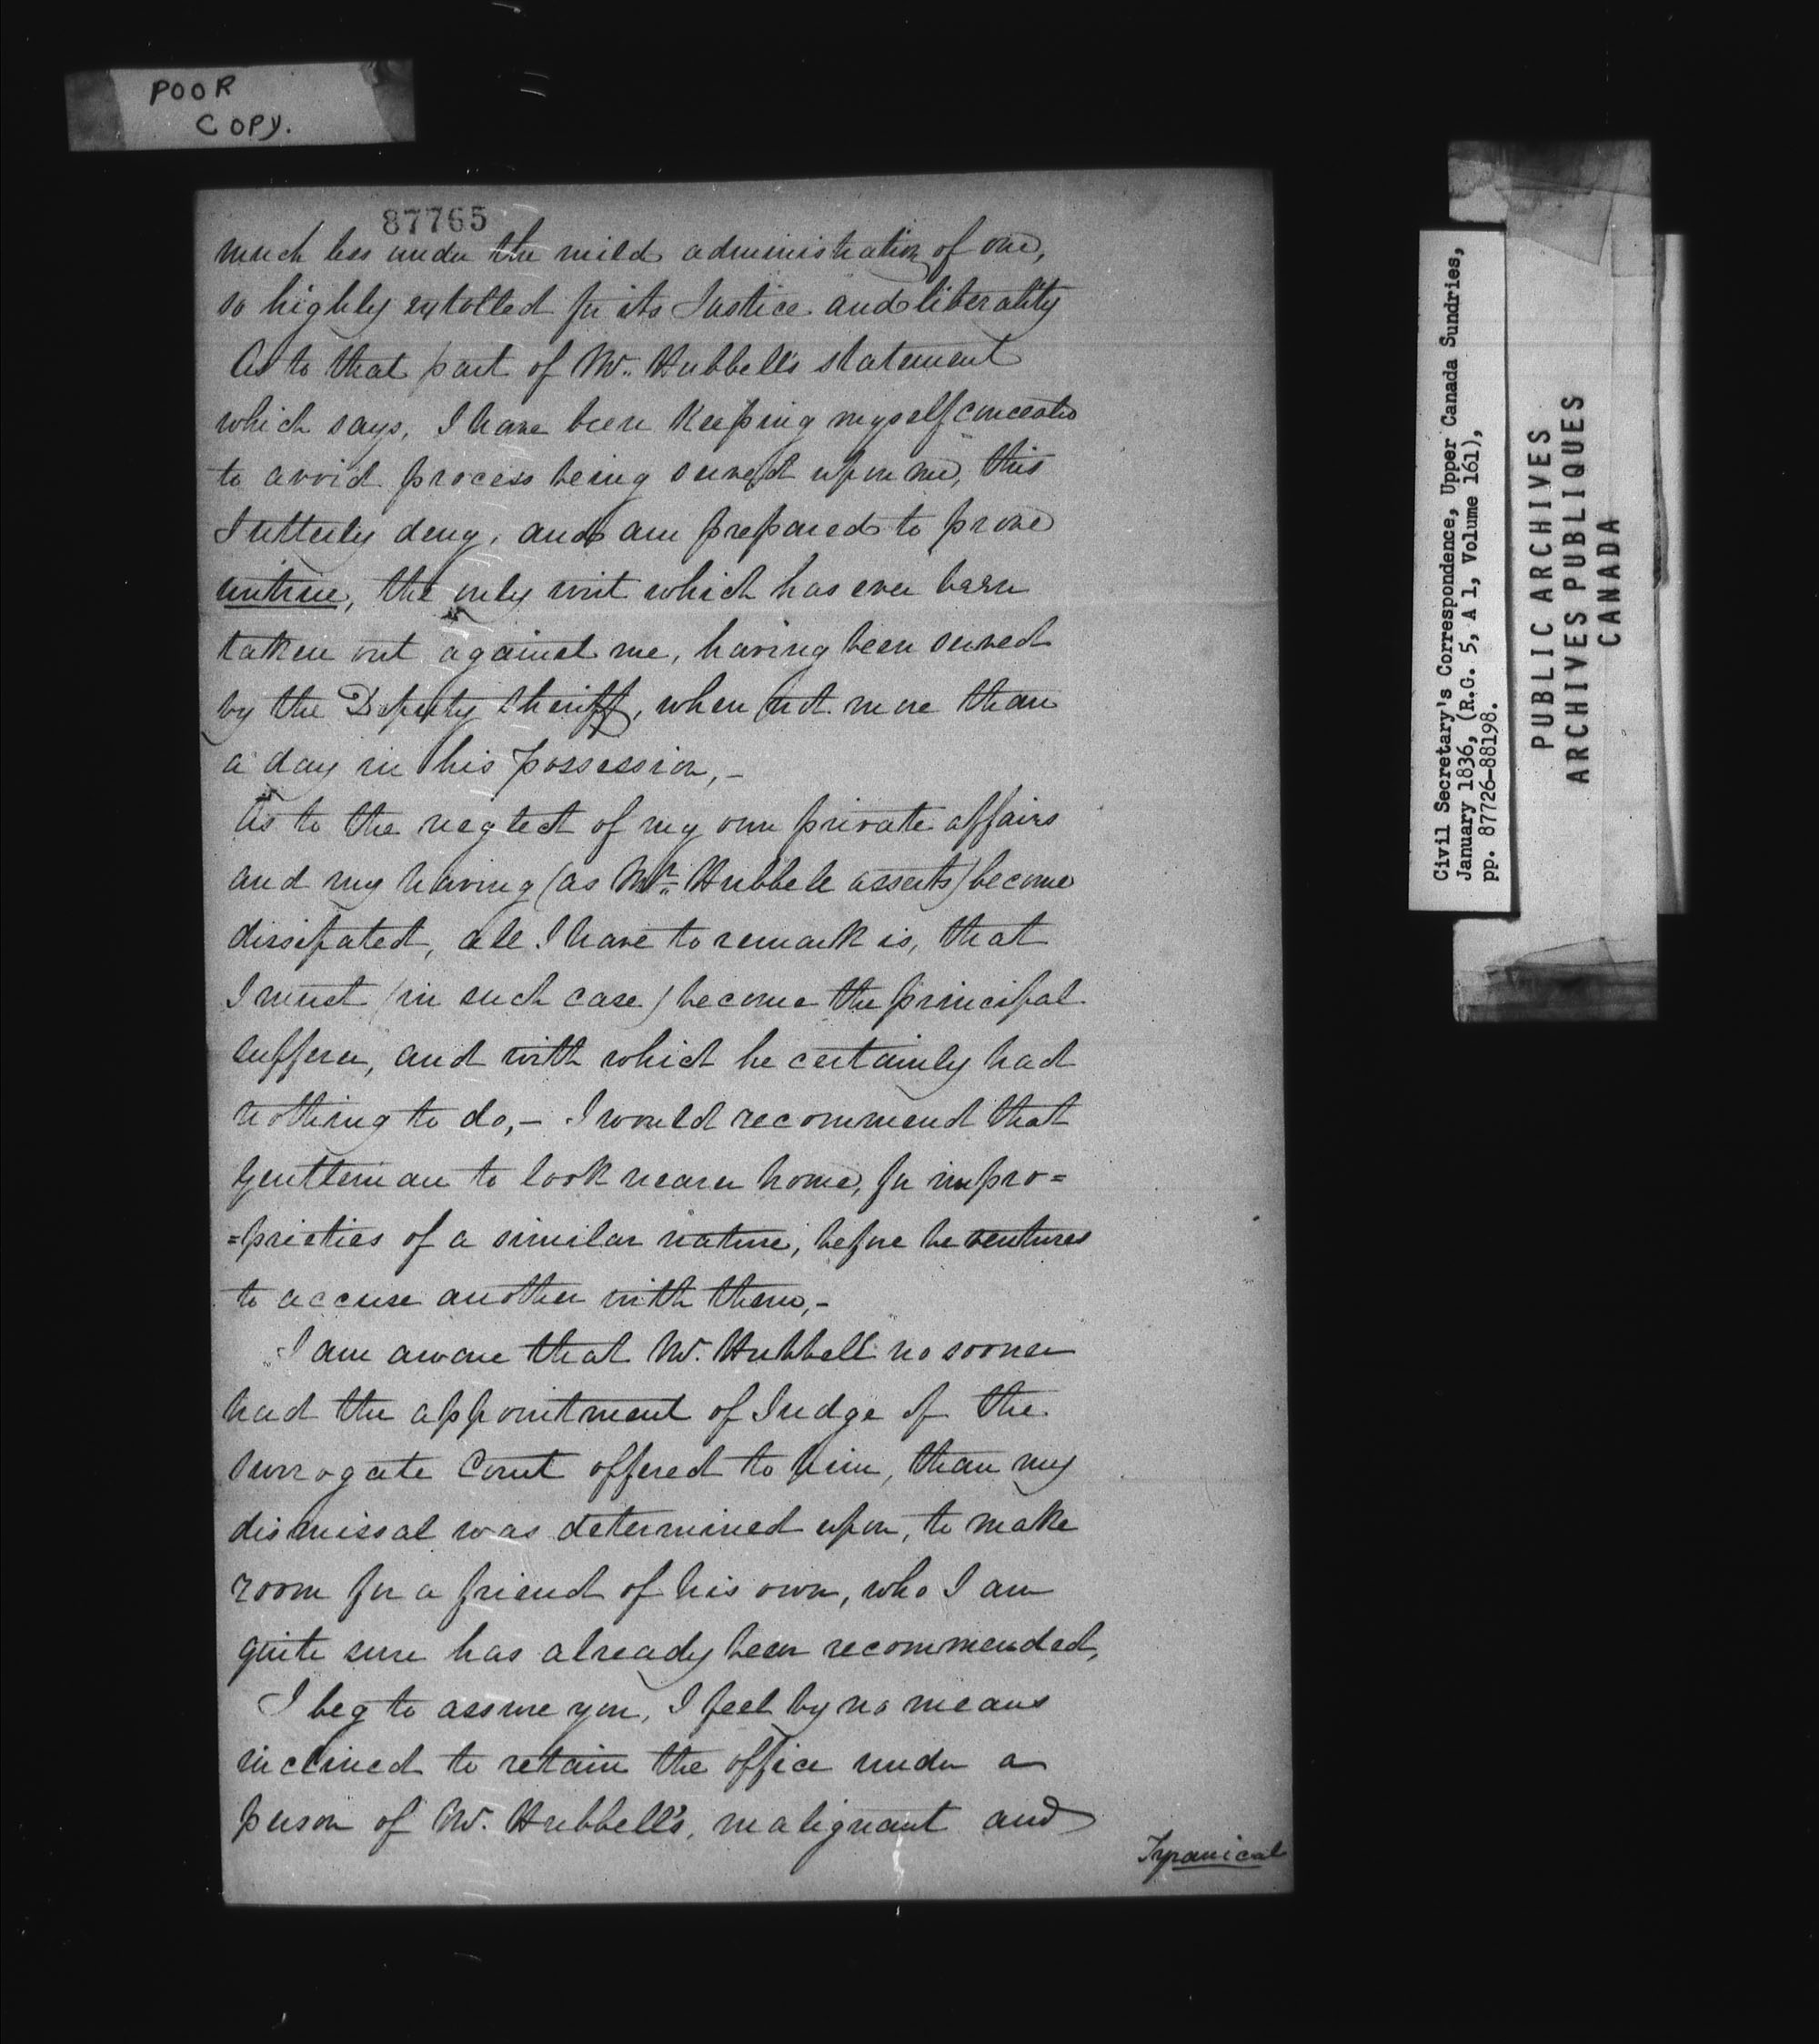 POOR
COPY.
87765
much less under the mild administration of one,
so highly extolled for its Justice and liberality
As to that part of Mr. Hubbell's statement
which says, I have been keeping myself concealed
to avoid process being served upon me, this
I utterly deny, and am prepared to prove
untrue, the only writ which has ever been
taken out against me, having been served
by the Deputy Sheriff, when not more than
a day in his possession,-
As to the neglect of my own private affairs
and my having (as Mr. Hubbell asserts) become
dissipated, all I have to remark is, that
I must (in such case) become the principal
sufferer, and with which he certainly had
nothing to do,- I would recommend that
gentleman to look nearer home, for impro=
=prieties of a similar nature, before he ventures
to accuse another with them,-
I am aware that Mr. Hubbell no sooner
had the appointment of Judge of the
Surrogate Court offered to him, than my
dismissal was determined upon, to make
room for a friend of his own, who I am
quite sure has already been recommended,
I beg to assure you, I feel by no means
inclined to retain the office under a
person of Mr. Hubbell's, malignant and
Tyranical
Civil Secretary's Correspondence, Upper Canada Sundries,
January 1836, (R.G. 5, A 1, Volume 161),
pp. 87726-88198.
PUBLIC ARCHIVES
ARCHIVES PUBLIQUES
CANADA